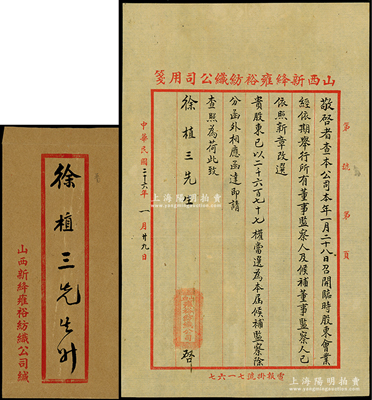 山西新絳雍裕紡織公司用箋
第 號 第 頁
敬啓者查本公司本年一月二十八日召開臨時股東會業
經依期舉行所有董事監察人及候補董事監察人已
依照新章改選
貴股東已以二千六百七十七權當選為本屆候補監察除
分函外相應函達即請
查照為荷此致
徐植三先生
啓
中華民國二十六年 一月廿九日
電報掛號七一六七
徐植三先生
山西新絳雍裕紡織公司緘
上海陽明拍卖